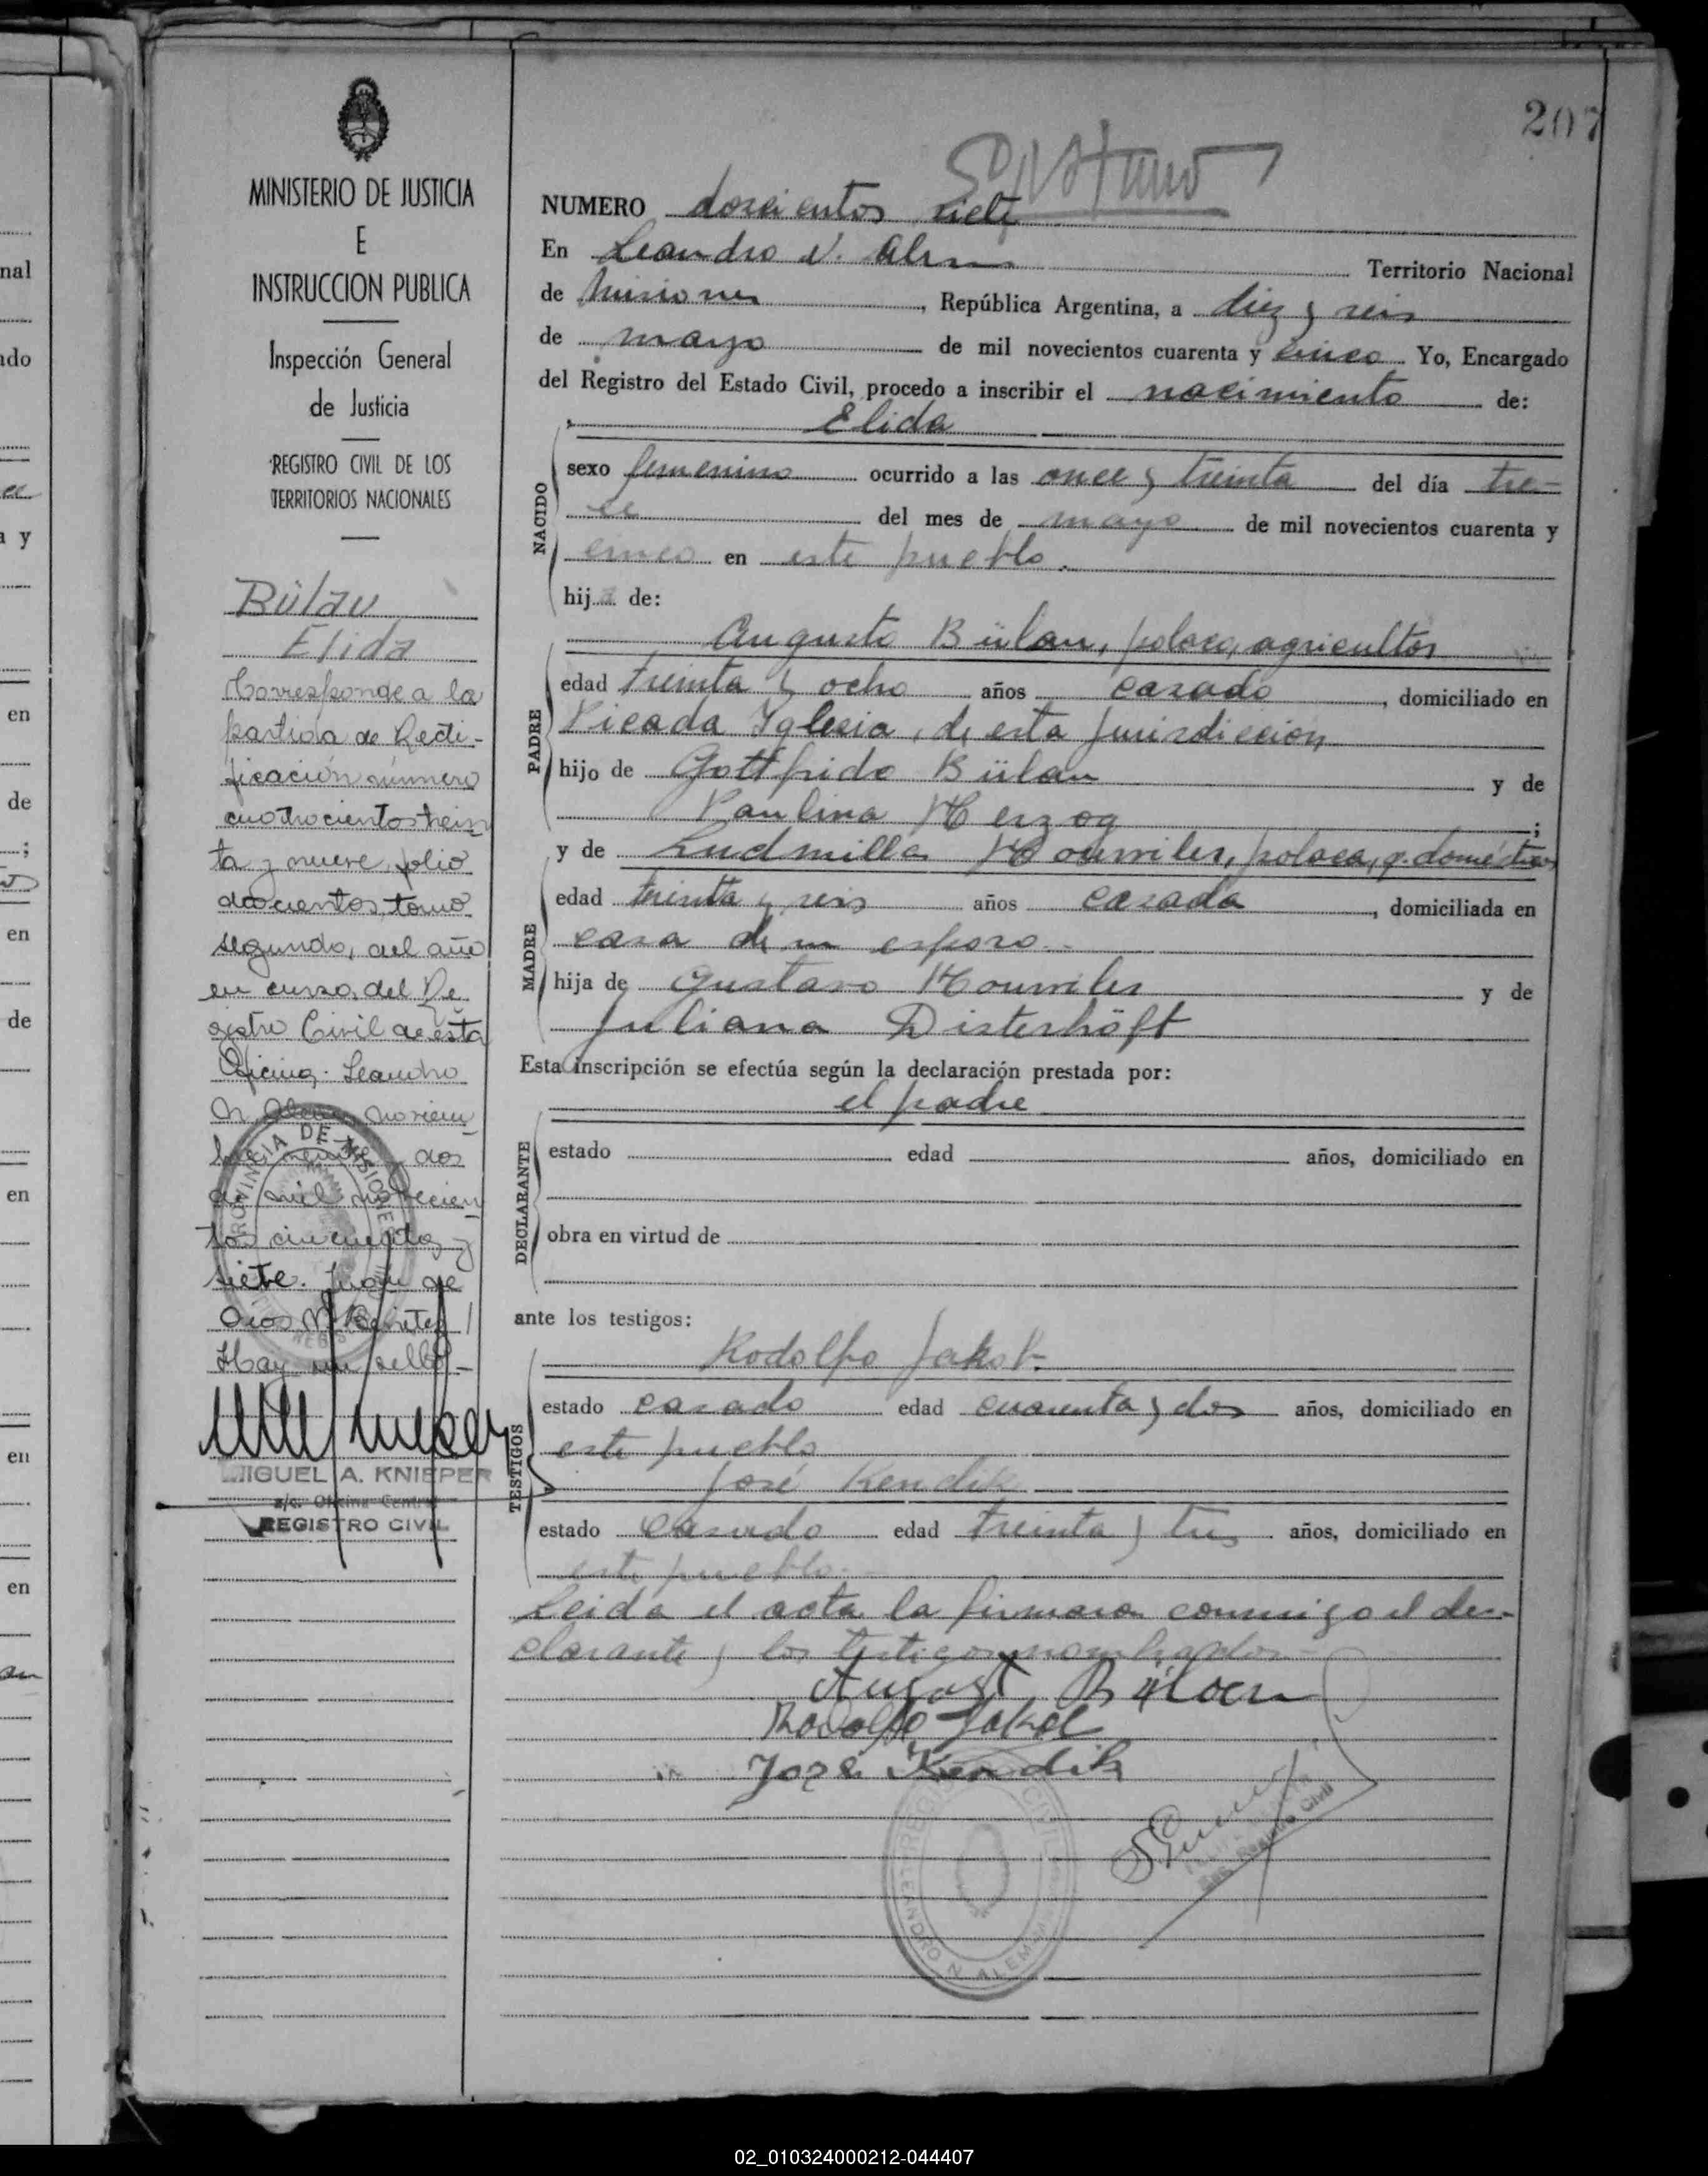 207
MINISTERIO DE JUSTICIA
E
INSTRUCCION PUBLICA
Inspección General
de Justicia
REGISTRO CIVIL DE LOS
TERRITORIOS NACIONALES
Bülau
Elida
Corresponde a la
partida de Recti-
ficación número
cuatrocientos trein
ta y nueve, folio
doscientos, tomo
segundo, del año
en curso, del Re
gistro Civil de esta
Oficina. Leandro
N. Alem, noviem-
bre veinte y dos
de mil novecien
tos cincuenta y
siete. Juan de
Dios M. Benitez
Hay un sello.-
PROVINCIA DE MISIONES
MIGUEL A. KNIEPER
a/c. Oficina Central
REGISTRO CIVIL
NUMERO doscientos siete
En Leandro N. Alem Territorio Nacional
de Misiones, República Argentina, a diez y seis
de mayo de mil novecientos cuarenta y cinco Yo, Encargado
del Registro del Estado Civil, procedo a inscribir el nacimiento de:
Elida
NACIDO
sexo femenino ocurrido a las once y treinta del día tre-
ce del mes de mayo de mil novecientos cuarenta y
cinco en este pueblo.
hija de:
PADRE
Augusto Bülau, polaco, agricultor
edad treinta y ocho años casado, domiciliado en
Picada Iglesia, de esta jurisdicción
hijo de Gottfrido Bülau y de
Paulina Herzog;
MADRE
y de Ludmilla, polaca, q. domésticos
edad treinta y seis años casada, domiciliada en
casa de su esposo.
hija de Gustavo y de
Juliana Disterhöft
Esta inscripción se efectúa según la declaración prestada por:
el padre
DECLARANTE
estado edad años, domiciliado en
obra en virtud de
ante los testigos:
TESTIGOS
Rodolfo Jakob
estado casado edad cuarenta y dos años, domiciliado en
este pueblo
José Kendik
estado casado edad treinta y tres años, domiciliado en
este pueblo.
Leida el acta la firmaron conmigo el de-
clarante y los testigos nombrados
August Bülau
Rodolfo Jakob
José Kendik
REGISTRO CIVIL
LEANDRO N. ALEM
Registro Civil
nal
ado
a y
en
de
en
de
en
en
en
02_010324000212-044407